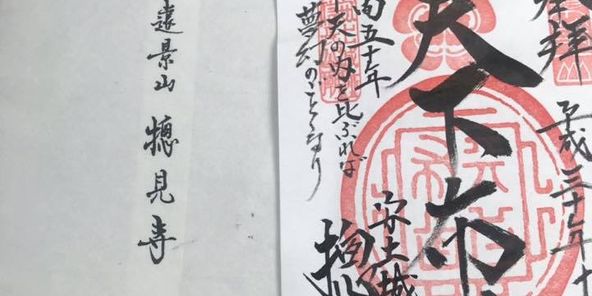 奉拝
平成三十年十
天下布
安土城
摠見
間五十年
下天の内を比ぶれば
夢幻のごとくなり
遠景山 摠見寺